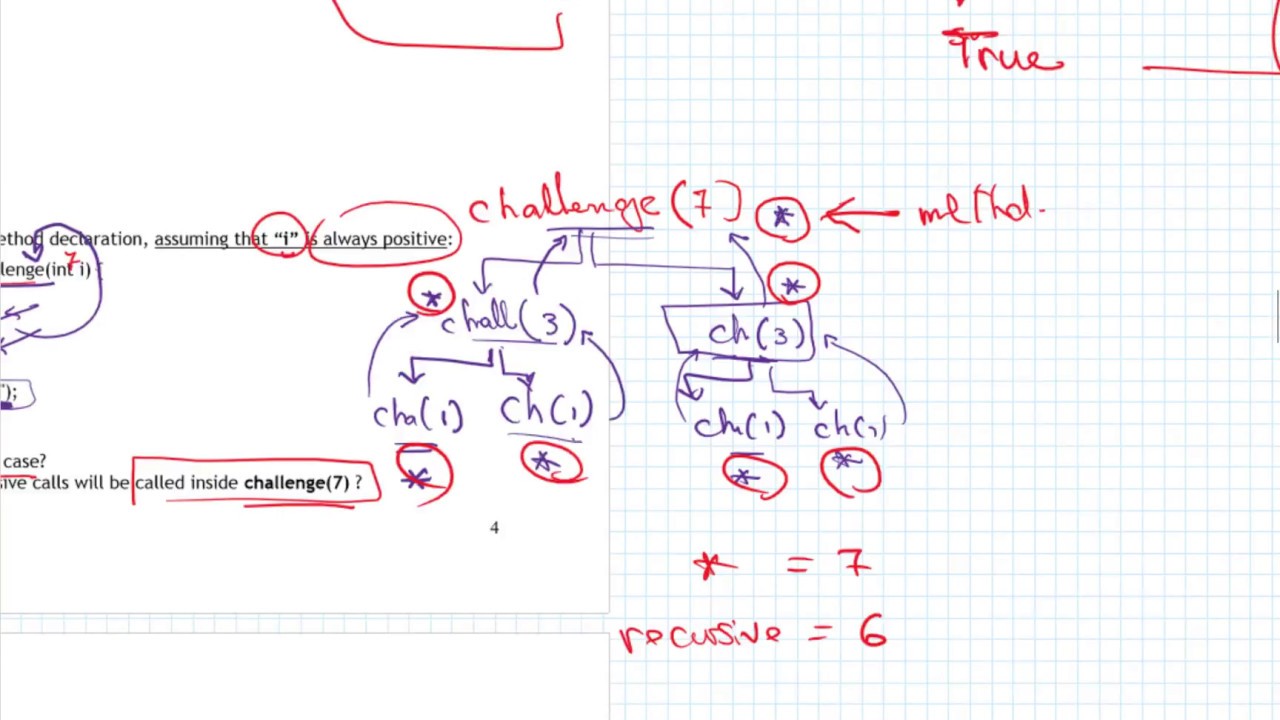 True
challenge(7) * ← method.
ethod declaration, assuming that “i” is always positive:
lenge(int i)
7
* *
chall(3) ch(3)
");
cha(1) ch(1) ch(1) ch(1)
* * * *
case?
ive calls will be called inside challenge(7) ?
4
* = 7
recursive = 6